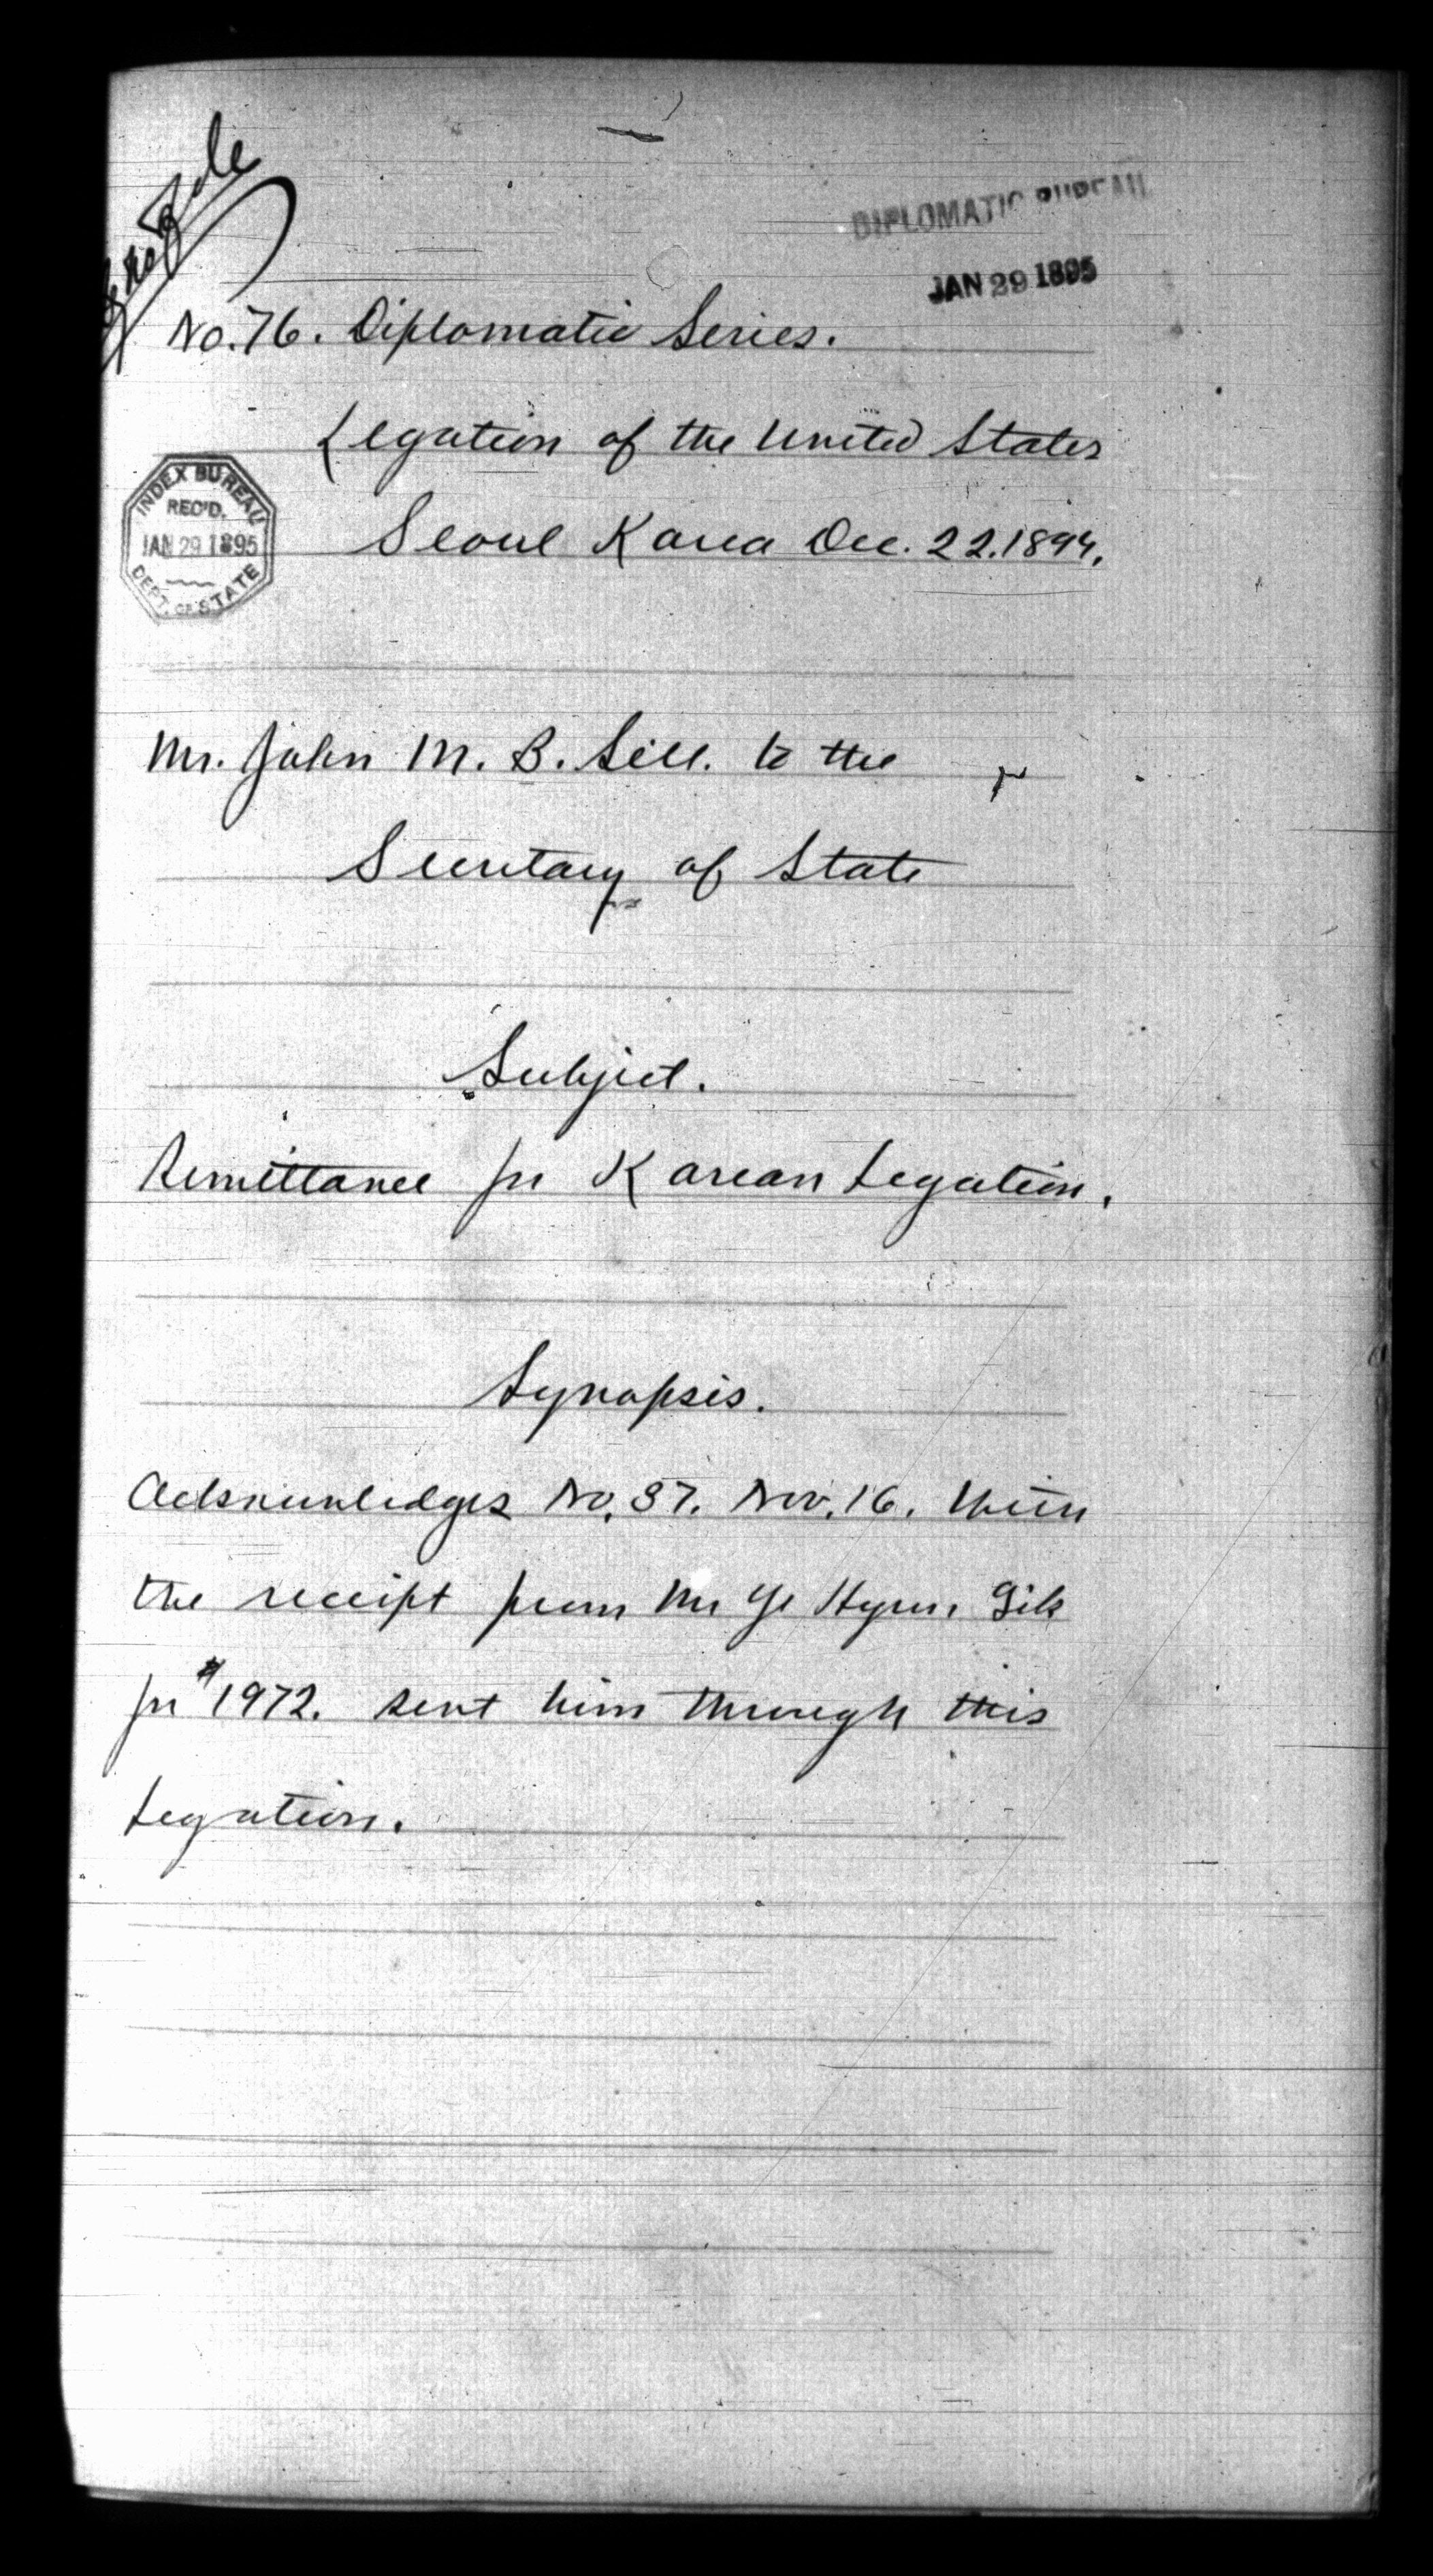 DIPLOMATIC BUREAU
JAN 29 1895
No. 76. Diplomatic Series.
Legation of the United States
INDEX BUREAU
REC'D.
JAN 29 1895
DEPT. OF STATE
Seoul Korea Dec. 22. 1894.
Mr. John M. B. Sill. to the
Secretary of State
Subject.
Remittance for Korean Legation.
Synopsis.
Acknowledges No. 37. Nov. 16. With
the receipt from Mr Ye Hyun Gik
for $1972. sent him through this
Legation.